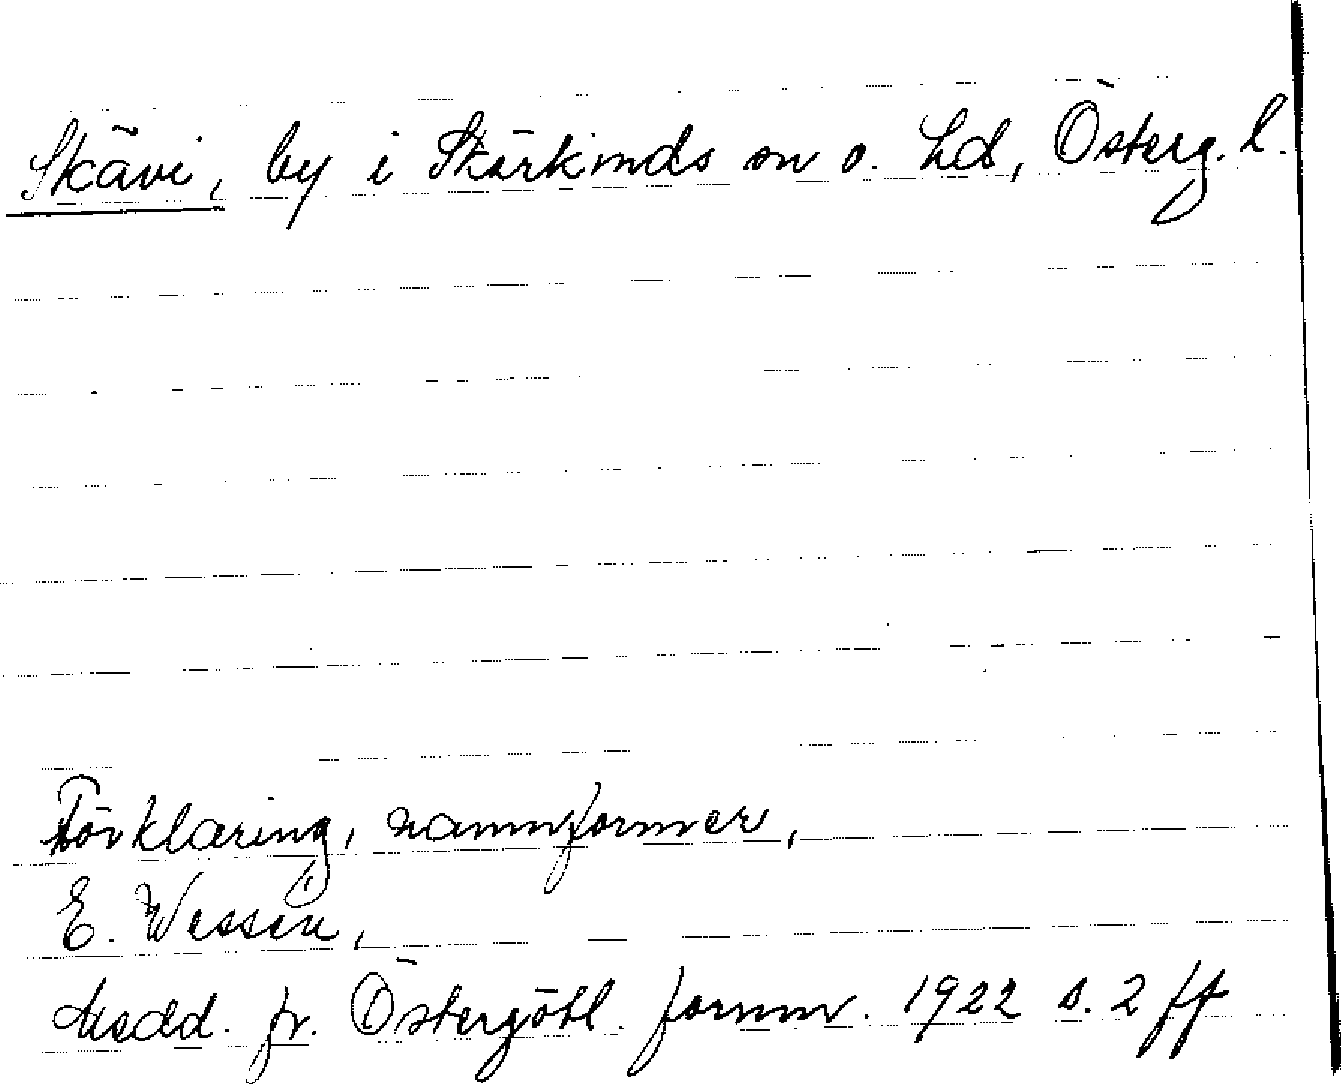 Skävi, by i Skärkinds sn o. hd, Österg. l.
Förklaring, namnformer,
E. Wessén,
Medd. fr. Östergötl. fornm. 1922 s. 2 ff